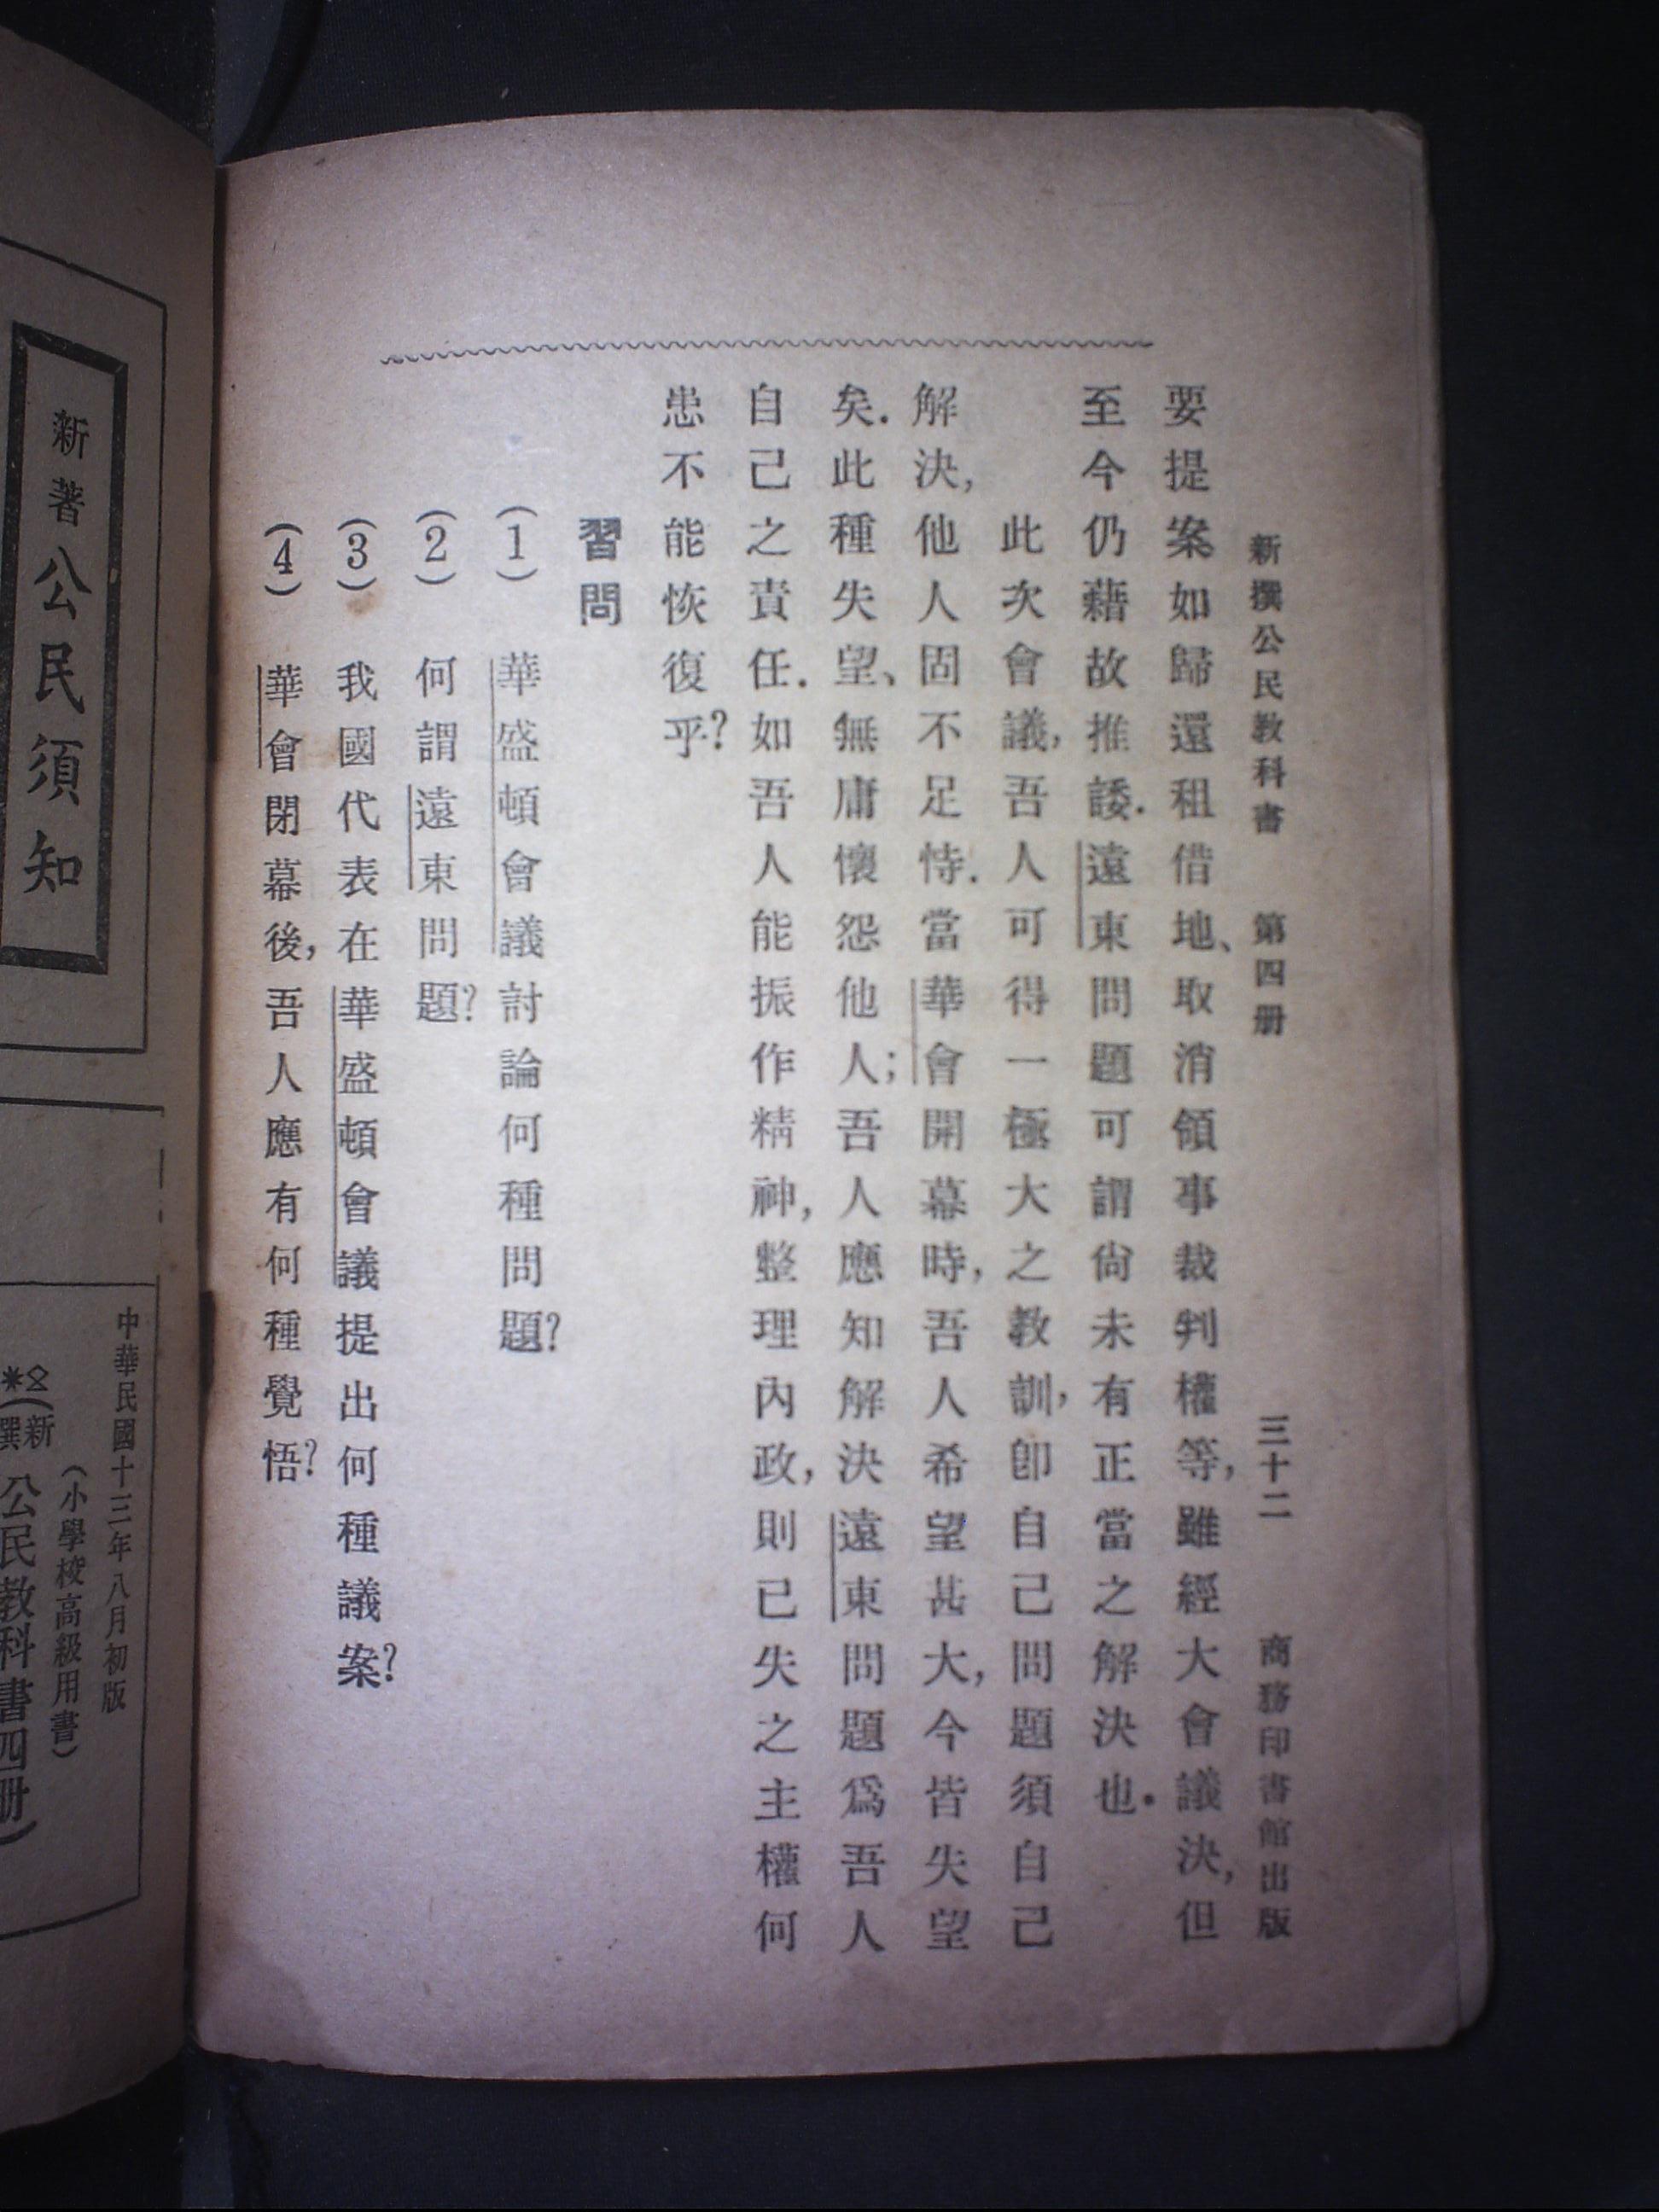 新撰公民教科書 第四册 三十二 商務印書館出版
要提案。如歸還租借地、取消領事裁判權等，雖經大會議決，但
至今仍藉故推諉．遠東問題可謂尙未有正當之解決也．
此次會議，吾人可得一極大之教訓，卽自己問題須自己
解決，他人固不足恃．當華會開幕時，吾人希望甚大，今皆失望
矣．此種失望、無庸懷怨他人；吾人應知解決遠東問題爲吾人
自己之責任．如吾人能振作精神，整理內政，則已失之主權何
患不能恢復乎？
習問
(1) 華盛頓會議討論何種問題？
(2) 何謂遠東問題？
(3) 我國代表在華盛頓會議提出何種議案？
(4) 華會閉幕後，吾人應有何種覺悟？
新著公民須知
中華民國十三年八月初版
(小學校高級用書)
新撰 公民教科書四册)